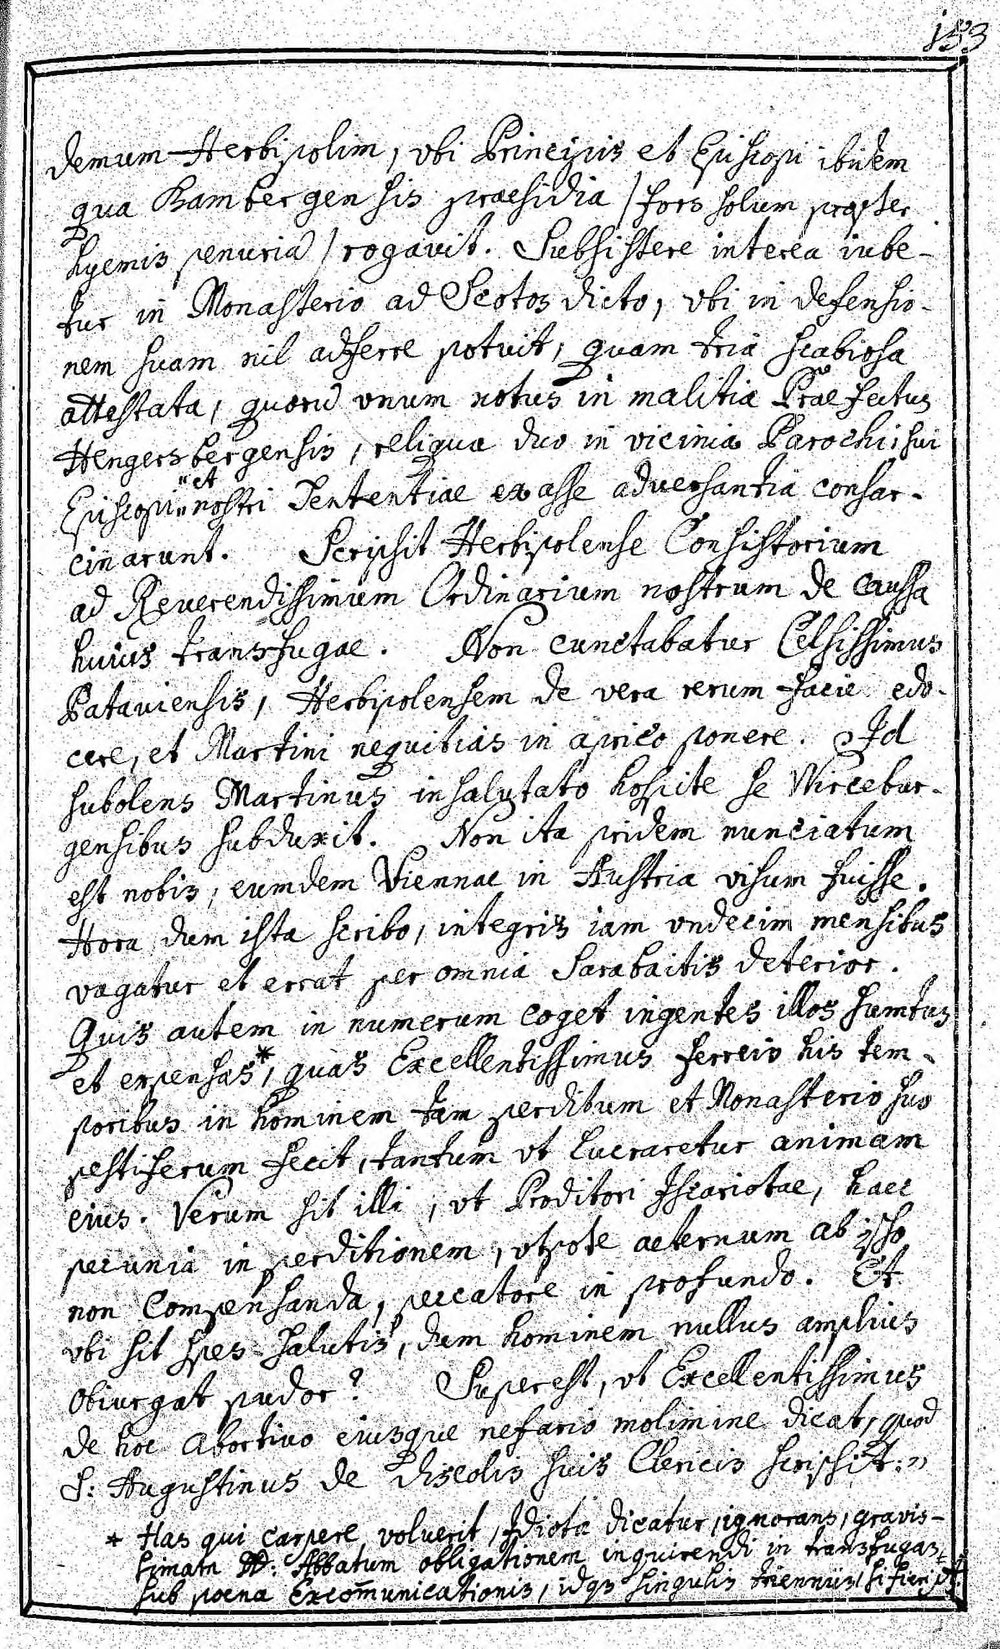 153
demum Herbipolim, vbi Principis et Episcopi ibidem
qua Bambergensis praesidia /fors solum propter
hyemis penuriã/ rogavit. Subsistere interea iube-
tur in Monasterio ad Scotos dicto, vbi in defensio-
nem suam nil adferre potuit, quam tria scabiosa
attestata, quorũ vnum notus in malitia Praefectus
Hengersbergensis, reliqua duo in vicinia Parochi, sui
Episcopi "et nostri Sententiae ex asse adversantia consar-
cinarunt. Scripsit Herbipolense Consistorium
ad Reverendissimum Ordinarium nostrum de caussa
huius transfugae. Non cunctabatur Celsissimus
Pataviensis, Herbipolensem de vera rerum facie edo-
cere, et Martini nequitias in aprico ponere. Id
subolens Martinus insalutato hospite se Wircebur-
gensibus subduxit. Non ita pridem nunciatum
est nobis, eumdem Viennae in Austria visum fuisse.
Hora, dum ista scribo, integris iam vndecim mensibus
vagatur et errat per omnia Sarabaitis deterior.
Quis autem in numerum coget ingentes illos sumtus
et expensas*, quas Excellentissimus ferreis his tem-
poribus in hominem tam perditum et Monasterio suo
pestiferum fecit, tantum vt lucraretur animam
eius. Verum sit illi, vt Proditori Iscariotae, haec
pecunia in perditionem, vtpote aeternum ab ipso
non compensanda, peccatore in profundo. Et
vbi sit spes salutis, dum hominem nullus amplius
obiurgat pudor? Superest, vt Excellentissimus
de hoc Abortivo eiusque nefario molimine dicat, quod
S: Augustinus de discolis suis Clericis scripsit: "
* Has qui carpere voluerit, Idiota dicatur, ignorans, gravis-
simam DD: Abbatum obligationem inquirendi in transfugas,
sub poena Excom̃unicationis, idqȝ singulis trienniis, si fieri